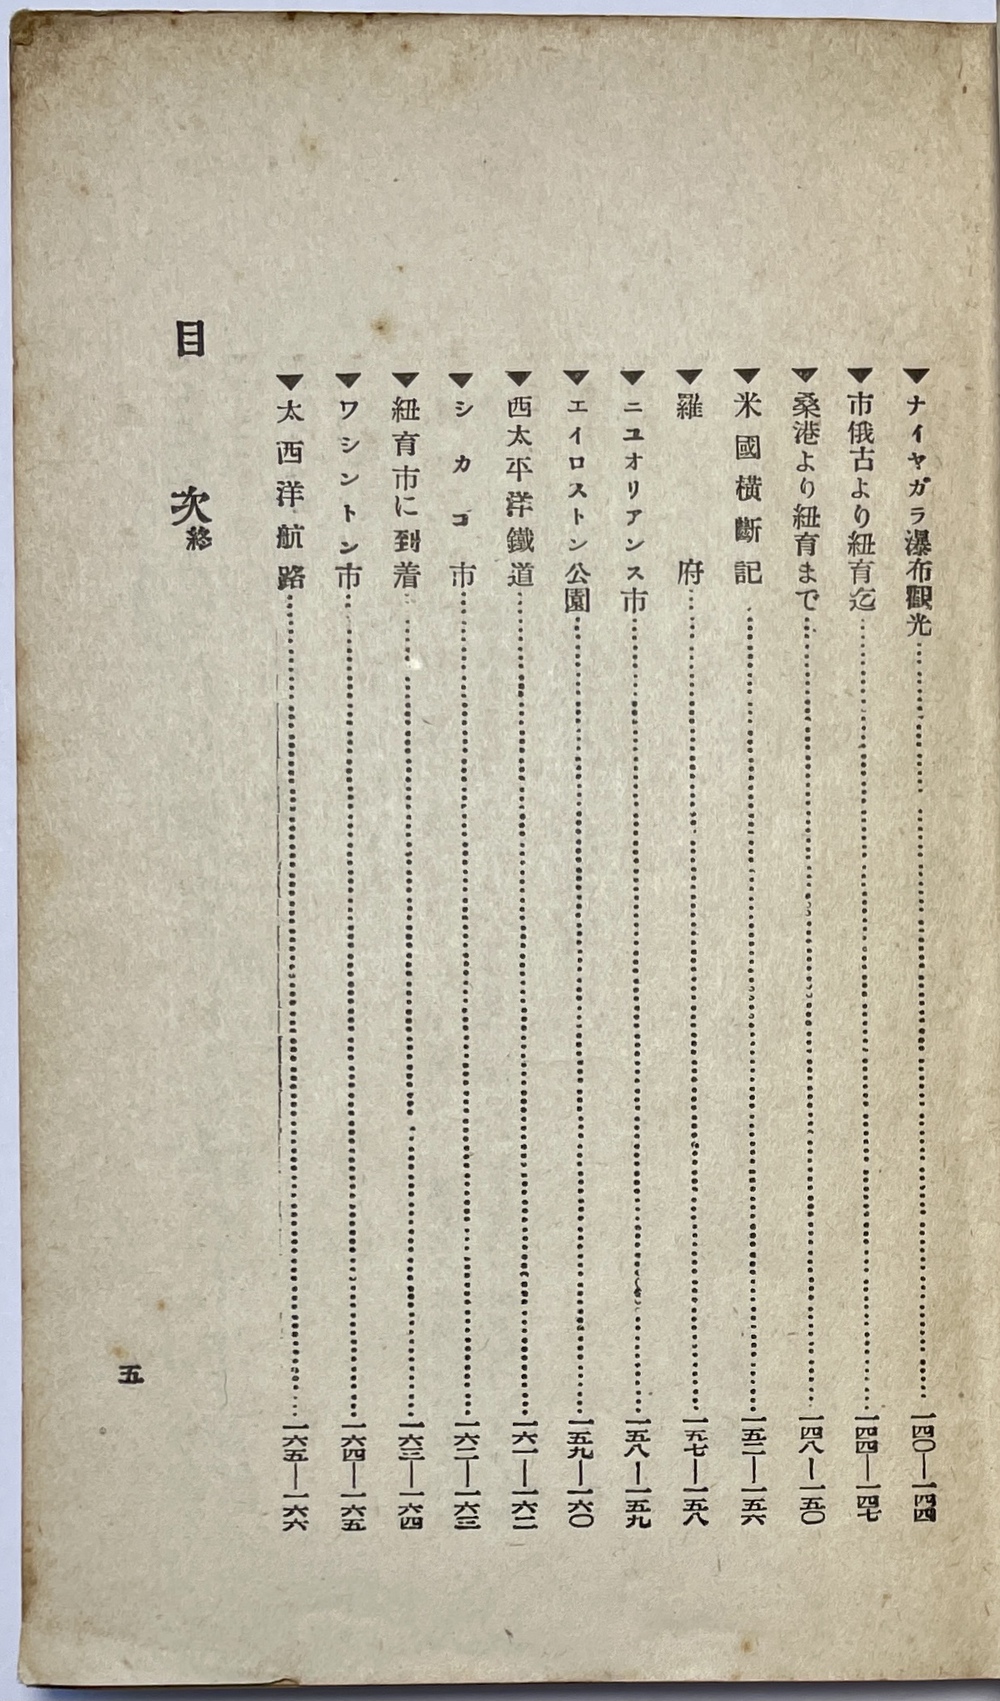 ▼ナイヤガラ瀑布觀光……一四〇―一四四
▼市俄古より紐育迄……一四四―一四七
▼桑港より紐育まで……一四八―一五〇
▼米國橫斷記……一五二―一五六
▼羅府……一五七―一五八
▼ニユオリアンス市……一五八―一五九
▼エイロストン公園……一五九―一六〇
▼西太平洋鐵道……一六一―一六二
▼シカゴ市……一六二―一六三
▼紐育市に到着……一六三―一六四
▼ワシントン市……一六四―一六五
▼太西洋航路……一六五―一六六
目次終
五